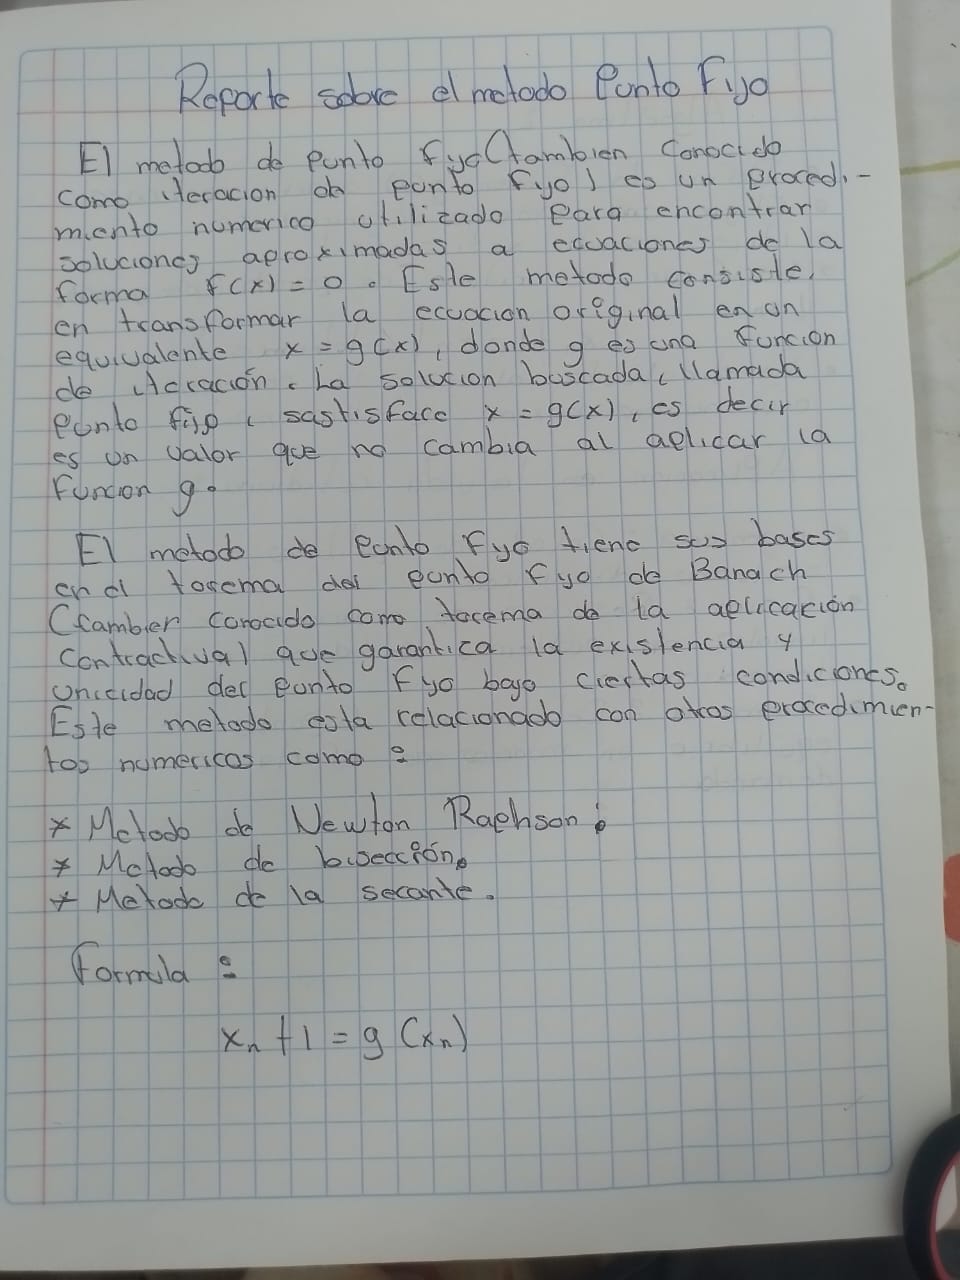 Reporte sobre el metodo Punto Fijo
El metodo de punto fijo (tambien conocido
como iteracion de punto fijo) es un procedi-
miento numerico utilizado para encontrar
soluciones aproximadas a ecuaciones de la
forma f(x) = 0. Este metodo consiste,
en transformar la ecuacion original en un
equivalente x = g(x), donde g es una funcion
de iteración. La solucion buscada, llamada
punto fijo, sastisface x = g(x), es decir
es un valor que no cambia al aplicar la
funcion g.
El metodo de punto fijo tiene sus bases
en el teorema del punto fijo de Banach
(tambien conocido como teorema de la aplicación
contractival que garantica la existencia y
unicidad del punto fijo bajo ciertas condiciones.
Este metodo esta relacionado con otros procedimien-
tos numericos como:
* Metodo de Newton Raphson.
* Metodo de bisección.
* Metodo de la secante.
Formula:
xₙ + 1 = g (xₙ)